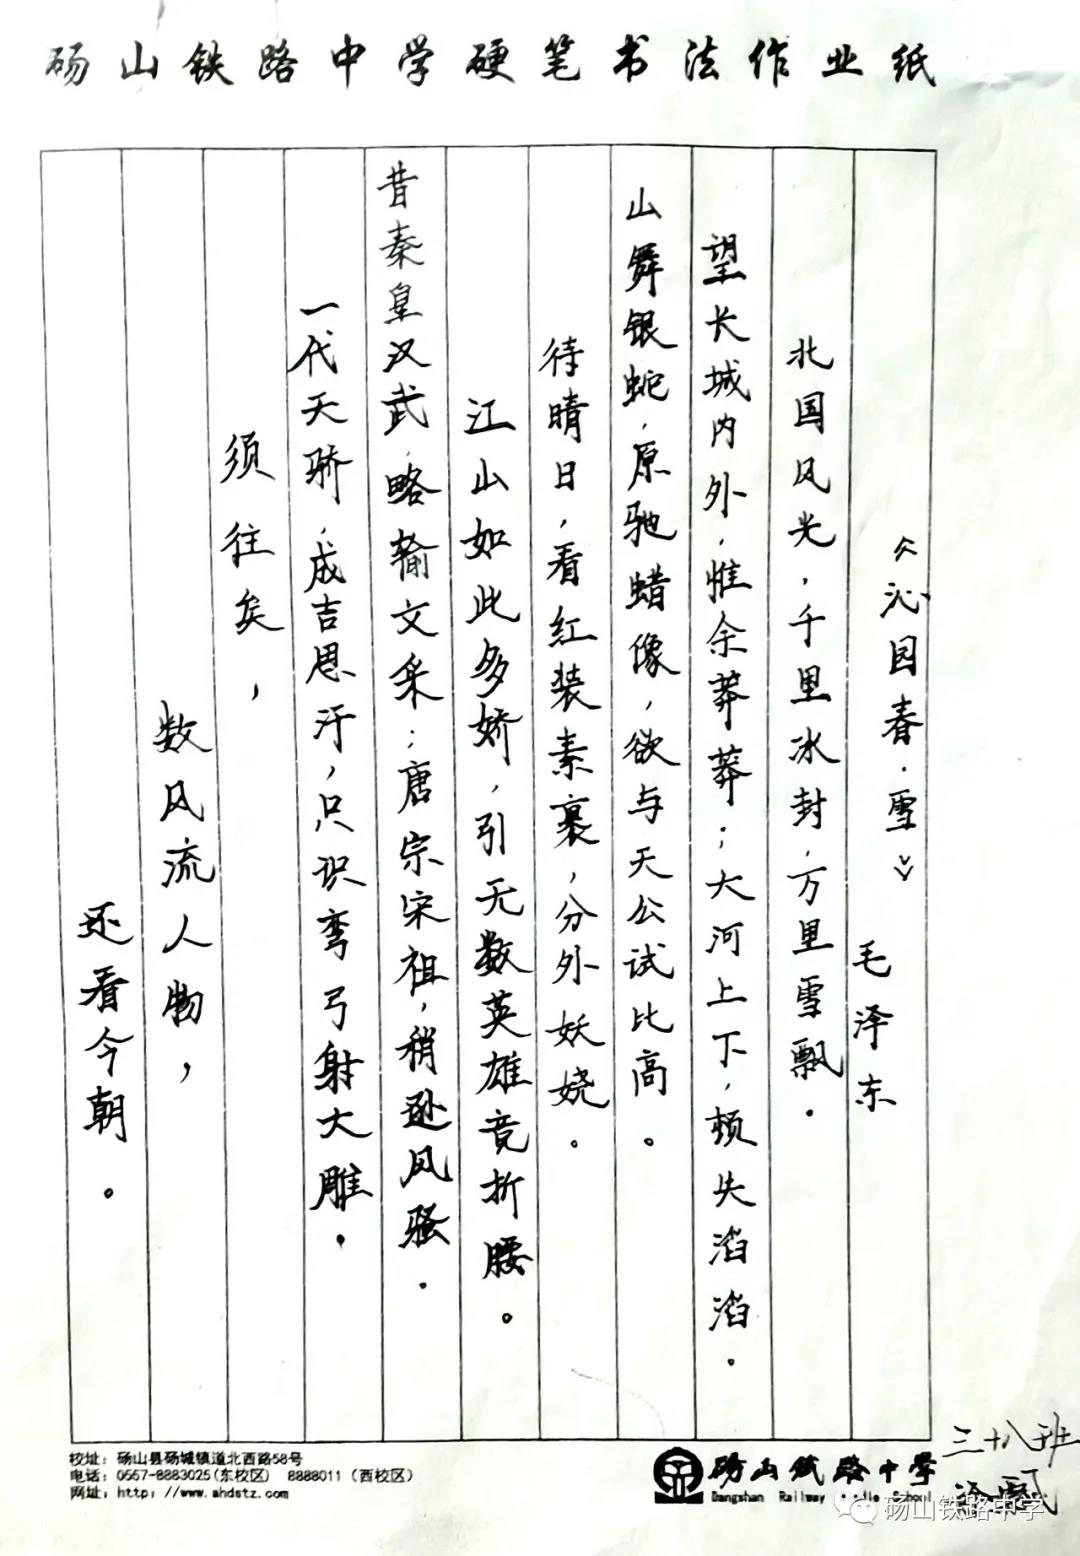 砀山铁路中学硬笔书法作业纸
《沁园春·雪》
毛泽东
北国风光，千里冰封，万里雪飘。
望长城内外，惟余莽莽；大河上下，顿失滔滔。
山舞银蛇，原驰蜡像，欲与天公试比高。
待晴日，看红装素裹，分外妖娆。
江山如此多娇，引无数英雄竞折腰。
昔秦皇汉武，略输文采；唐宗宋祖，稍逊风骚。
一代天骄，成吉思汗，只识弯弓射大雕。
须往矣，
数风流人物，
还看今朝。
三十八班
校址：砀山县砀城镇道北西路58号
电话：0557-8883025(东校区) 8888011（西校区）
网址：http：//www.ahdstz.com
砀山铁路中学
Dangshan Railway School
砀山铁路中学